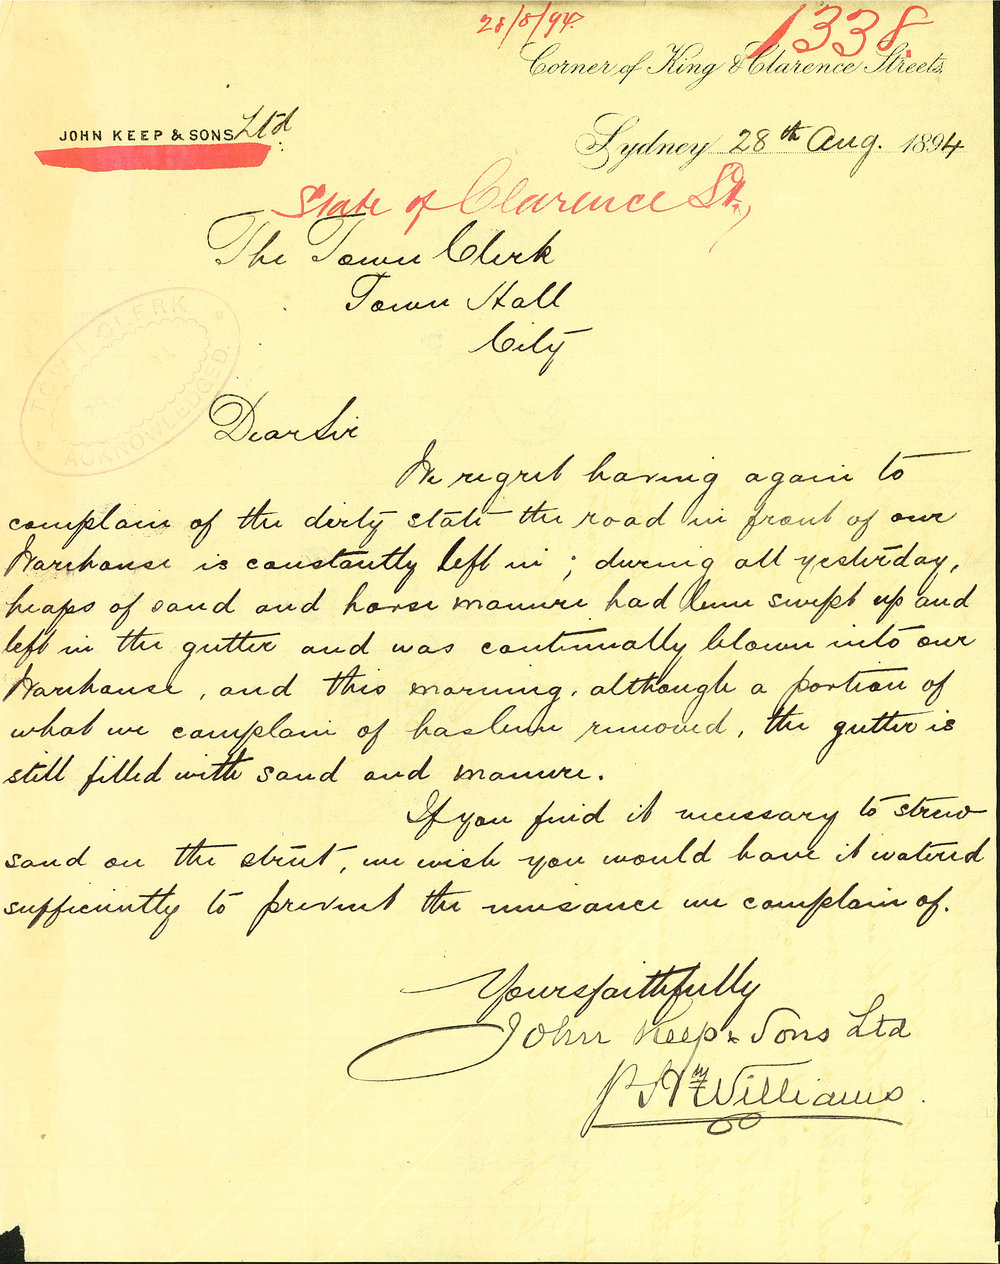 28/8/94
1338.
Corner of King & Clarence Streets.
JOHN KEEP & SONS Ltd
Sydney 28th Aug. 1894
State of Clarence St.,
The Town Clerk
Town Hall
City
TOWN CLERK
ACKNOWLEDGED.
Dear Sir
We regret having again to
complain of the dirty state the road in front of our
Warehouse is constantly left in; during all yesterday,
heaps of sand and horse manure had been swept up and
left in the gutter and was continually blown into our
Warehouse, and this morning, although a portion of
what we complain of has been removed, the gutter is
still filled with sand and manure.
If you find it necessary to strew
sand on the street, we wish you would have it watered
sufficiently to prevent the nuisance we complain of.
Yours faithfully
John Keep & Sons Ltd
Williams.